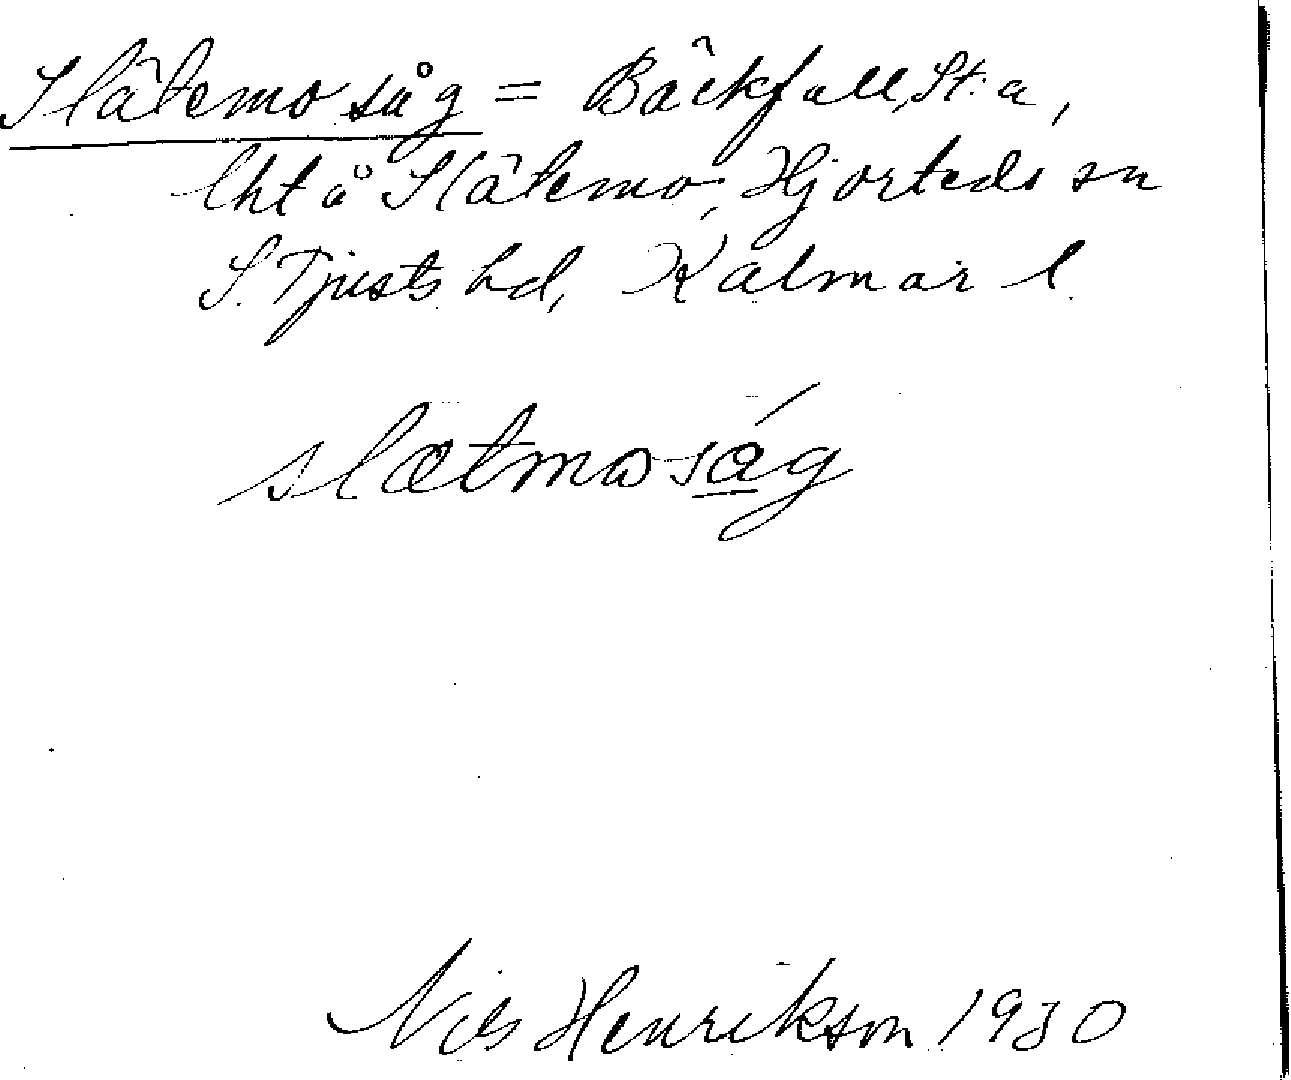 Slätemo såg = Bäckfall, St: a,
lht å Slätemo, Hjorteds sn
S. Tjusts hd, Kalmar l.
slætmoság
Nils Henrikson 1930